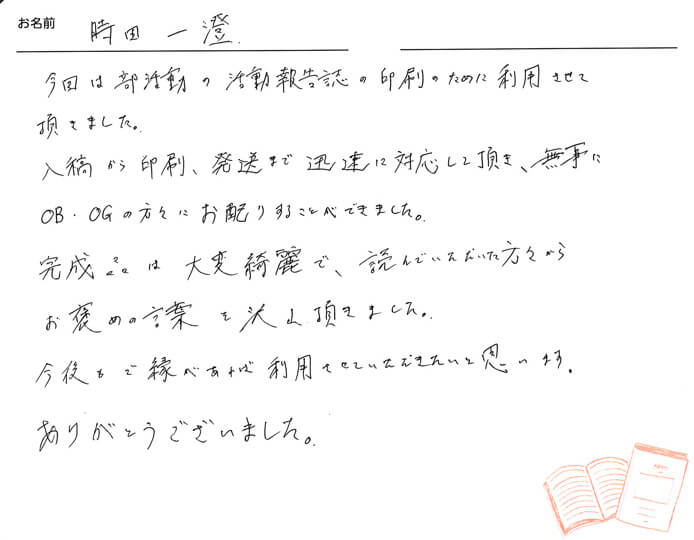 お名前 時田 一澄
今回は部活動の活動報告誌の印刷のために利用させて
頂きました。
入稿から印刷、発送まで迅速に対応して頂き、無事に
OB・OGの方々にお配りすることができました。
完成品は大変綺麗で、読んでいただいた方々から
お褒めの言葉を沢山頂きました。
今後もご縁があれば利用させていただきたいと思います。
ありがとうございました。